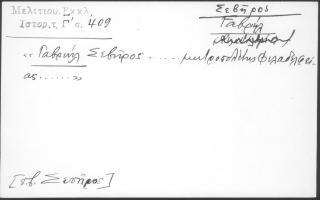 Μελιτίου. Εκκλ.
Ιστορ. τ. Γ΄ σ. 409
Σεβῆρος
Γαβριήλ
« Γαβριήλ Σεβῆρος ..... μητροπολίτης Φιλαδελφεί-
ας ..... »
[π.β. Σεπῆρος]